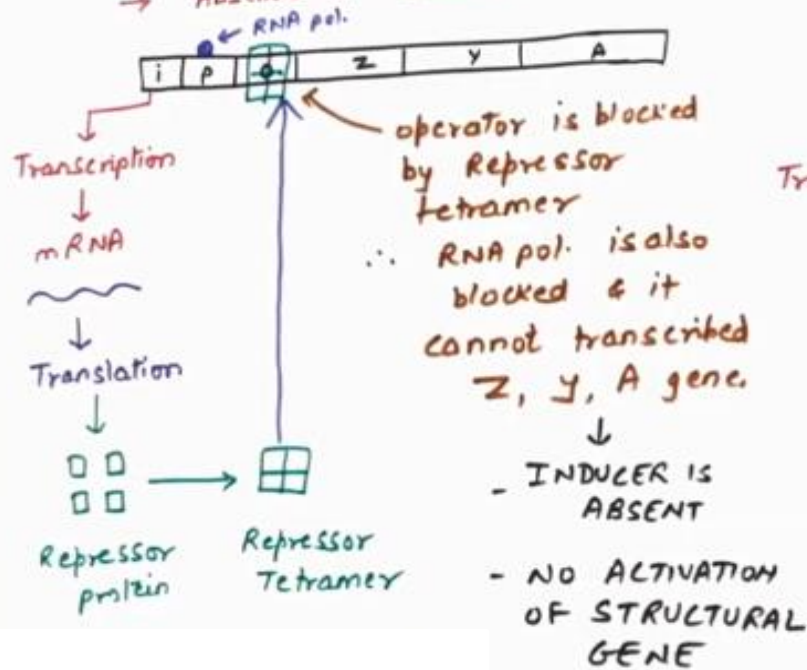 ← RNA pol.
i P O Z Y A
Transcription
↓
mRNA
↓
Translation
↓
Repressor
protein
→
Repressor
Tetramer
operator is blocked
by Repressor
tetramer
∴ RNA pol. is also
blocked & it
cannot transcribed
Z, Y, A gene.
↓
- INDUCER IS
ABSENT
- NO ACTIVATION
OF STRUCTURAL
GENE
Tr